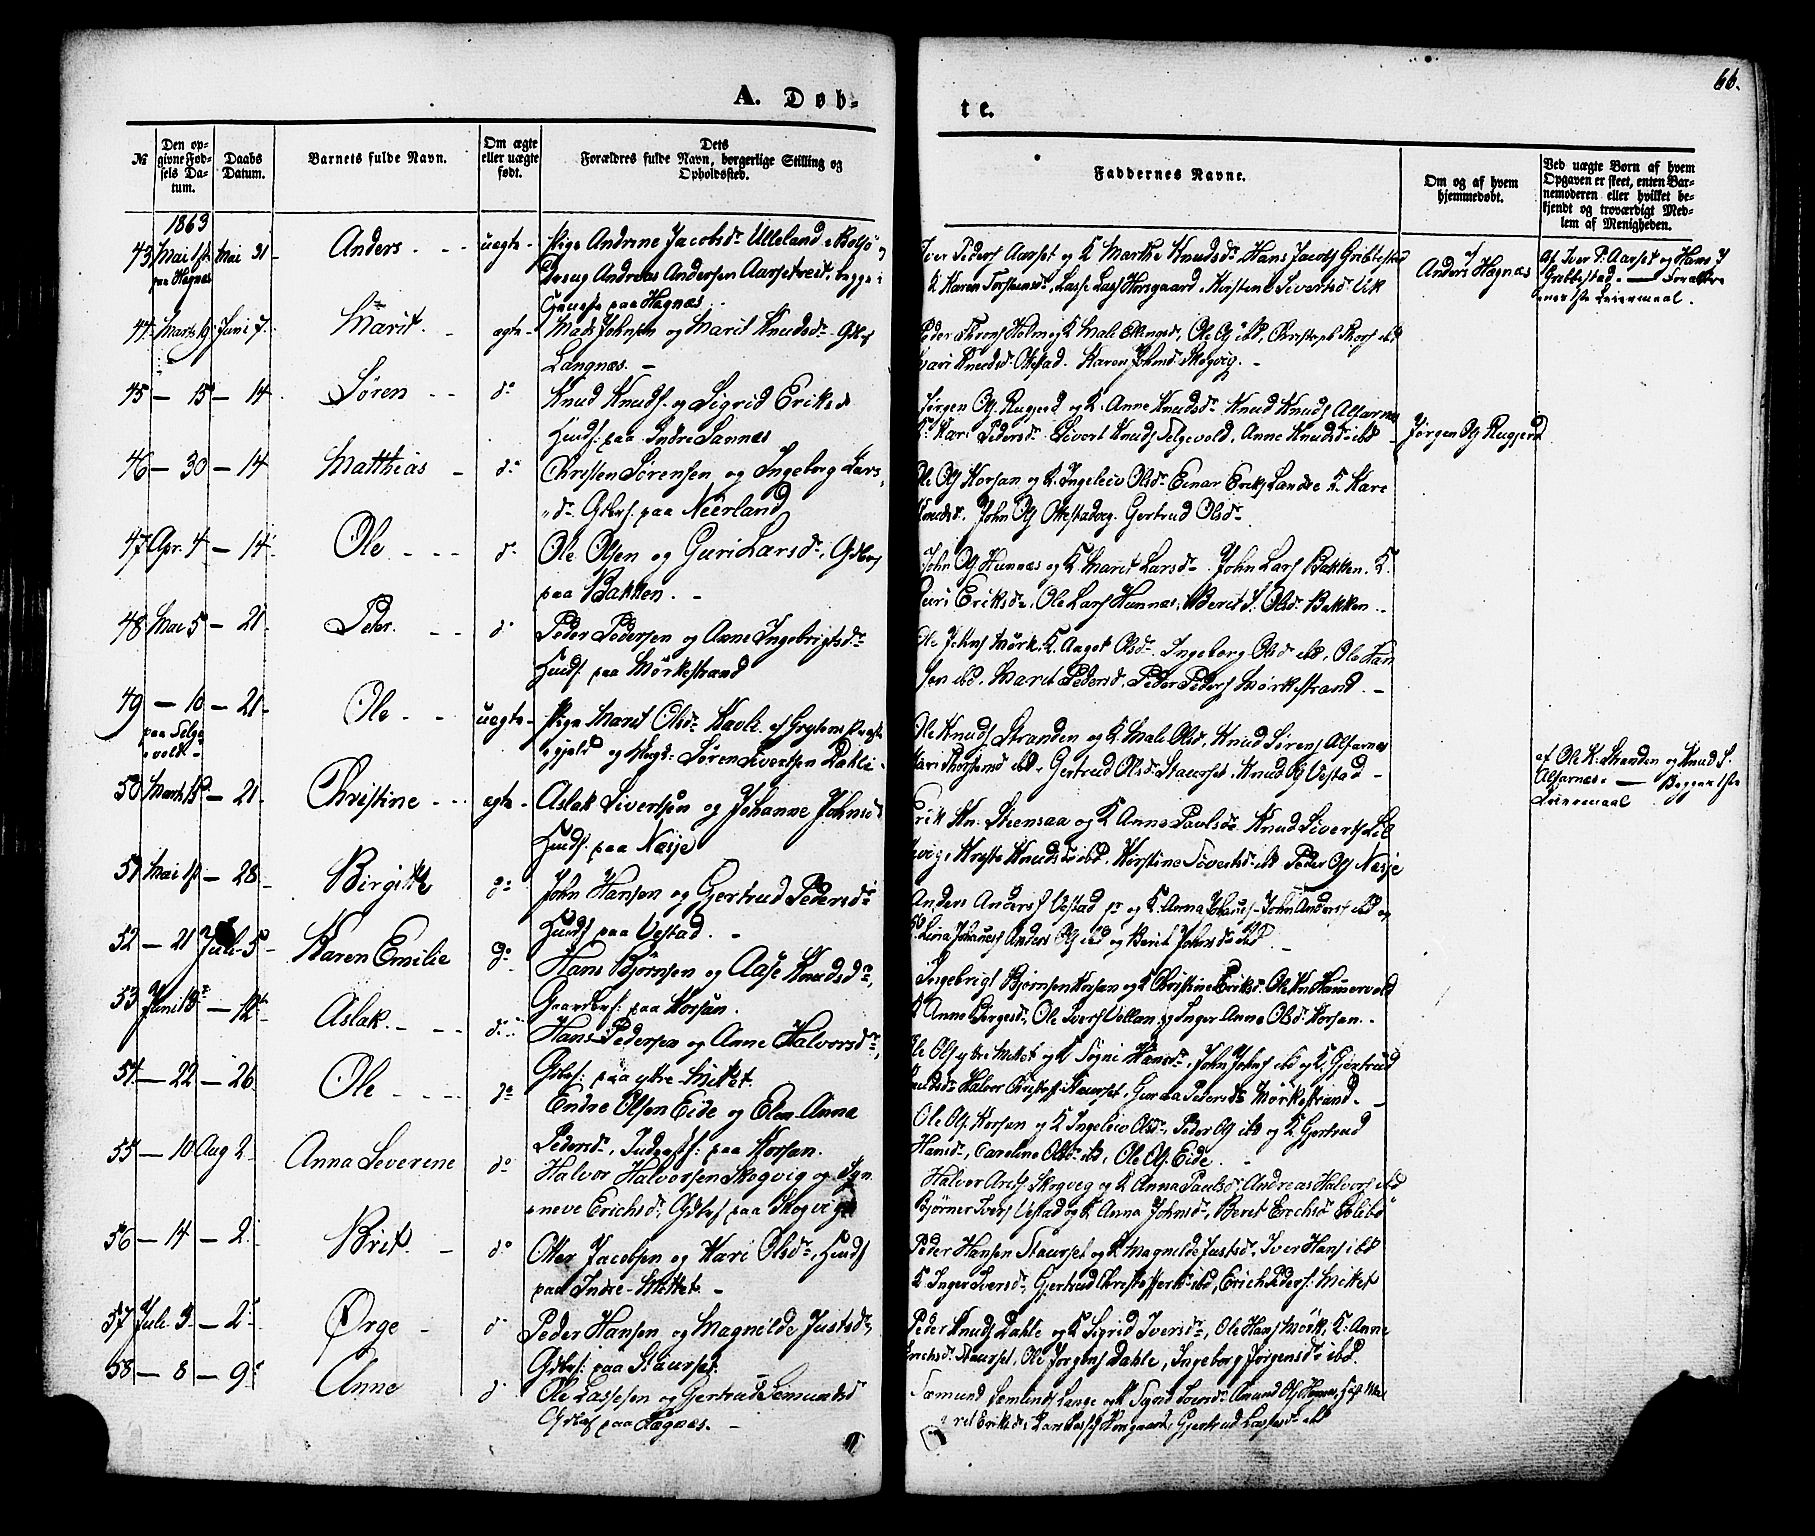 66.
A. Døb-
te.
№
Den op-
givne Fød-
sels Da-
tum.
Daabs
Datum.
Barnets fulde Navn.
Om ægte
eller uægte
født.
Dets
Forældres fulde Navn, borgerlige Stilling og
Opholdssted.
Faddernes Navne.
Om og af hvem
hjemmedøbt.
Ved uægte Børn af hvem
Opgaven er skeet, enten Bar-
nemoderen eller hvilket be-
kjendt og troværdigt Med-
lem af Menigheden.
1863
43 Mai 1st Mai 31 Anders uægte Pige Andrine Jacobsdr Ulleland Bolsö
paa Hagnæs
Andreas Andersen Aarsetreit
paa Hagnæs
Iver Peders Aarset og K. Marthe Knudsdr Hans Jacobs Gribbestad
K. Karen Torstensdr, Lasse Lars Horsgaard, Kirstine Sivertsd Vik
Anders Hagnæs
af Iver P. Aarset og Hans J
Gribbestad. — Forældre
nes 1ste Leiermaal.
44 Marts 19 Juni 7 Marit ægte Mads Johnsen og Marit Knudsdr Gbrf
Langnæs.
Peder Holm og K. Mali Ellingsd, Ole Os ibd,
Mari Knudsd Ottestad. Karen Johnsd Skogvig.
45 — 15 — 14 Søren do Knud Knuds. og Sigrid Eriksd
Huusf. paa Indre Sannæs
Jørgen Os Rugjerd og K. Anne Knudsdr Knud Knuds Alfarnæs
K. Kari Pedersdr Sivert Knuds Selgevold, Anne Knudsd ibd
Jørgen Os Rugjerd
46 — 30 — 14 Matthias do Christen Sørensen og Ingeborg Lars
dr Gbrf. paa Neerland
Ole Os Korsan og K. Ingeleiv Olsdr Einar Eriks Lande K. Kari
Knudsd. John Os Ottestadvig. Gertrud Olsdr
47 Apr. 4 — 14 Ole do Ole Olsen og Guri Larsdr, Gdbrf
paa Bakken.
John Os Hunnæs og K. Marit Larsdr. John Lars Bakken. K.
Guri Eriksdr, Ole Lars Hunnæs, Berit S. Olsdr Bakken
48 Mai 5 — 21 Peder do Peder Pedersen og Anne Ingebrigtsdr
Huusf. paa Mörkestrand
Ole Johns Mörk K. Aagot Olsdr. Ingeborg Olsd ibd, Ole Han
sen ibd. Marit Pedersd. Peder Peders Mörkestrand.
49 — 10 — 21 Ole uægte Pige Marit Olsdr Havli af Grytens Præste
paa Selge
vold
gjeld og Søren Sivertsen Dahle
Ole Knuds Stranden og K. Mali Olsd, Knud Sørens Alfarnæs
Mari Thorsensd ibd. Gertrud Olsdr Staurset, Knud Os Vestad
af Ole K. Stranden og Knud S.
Alfarnæs. — Begges 1ste
Leiermaal
50 Marts 15 — 21 Christine ægte Aslak Sivertsen og Johanne Johnsd
Huusf. paa Næsje
Erik Kn. Steensaa og K. Anne Paulsdr Knud Siverts
vig, Kirstine Sivertsdr ibd Peder Os Næsje
51 Mai 1st — 28 Birgitte do John Hansen og Gjertrud Pedersdr
Huusf. paa Vestad.
Anders Anders Vestad og K. Anna John Anders ibd og
Anders Os ibd og Berit Johnsdr ibd
52 — 21 Juli 5 Karen Emilie do Hans Bjørnsen og Aase Knudsdr,
Gaardbrf. paa Korsan.
Ingebrigt Bjørnsen Korsan og K. Christine Eriksdr Ole Kn Hammervold
K. Anne Børgesdr, Ole Ivers Vollan og Inger Anne Olsdr Korsan.
53 Juni 13 — 12te Aslak do Hans Pedersen og Anne Halvorsdr,
Gdbrf. paa ytre Mittet.
Ole Os ytre Mittet og K. Sygni Hansdr, John Johns ibd og K. Gjertrud
Halvor Staurset, Pedersdr Mörkestrand
54 — 22 — 26 Ole do Endre Olsen Eide og Elen Anna
Pedersdr, Inderstf. paa Korsan.
Ole Os. Korsan og K. Ingeleiv Olsdr, Peder Os ibd og K. Gjertrud
Hansdr, Caroline Olsdr ibd, Ole Os. Eide.
55 — 10 Aug 2 Anna Severine do Halvor Halvorsen Skogvig og Syn
neve Erichsdr Gdbrf paa Skogvig
Halvor Skogvig og K. Anna Paulsdr Andreas Halvors ibd
Bjørner Ivers Vestad og K. Anna Johnsdr, Beret Erichsdr
56 — 14 — 2 Brit do Otter Jacobsen og Kari Olsdr, Huusf
paa Indre-Mittet
Peder Hansen Staurset og K. Magnilde Justsdr, Iver Hans ibd
K. Inger Iversdr, Gjertrud ibd, Erich Peders. Mittet
57 Juli 3 — 2 Ørge do Peder Hansen og Magnilde Justsdr,
Gdbrf. paa Staurset.
Peder Knuds Dahle og K. Sigrid Iversdr, Ole Hans Mörk, K. Anne
Erichsdr Staurset, Ole Jørgens Dahle, Ingeborg Jørgensdr ibd.
58 — 8 — 9 Anne do Ole Lassesen og Gjertrud Semundsd
Gdbrf paa Hagnæs.
Sæmund Semunds Lange og K. Sigrid Iversdr
Eriksdr, Horsgaard, Gjertrud Lassesdr ibd